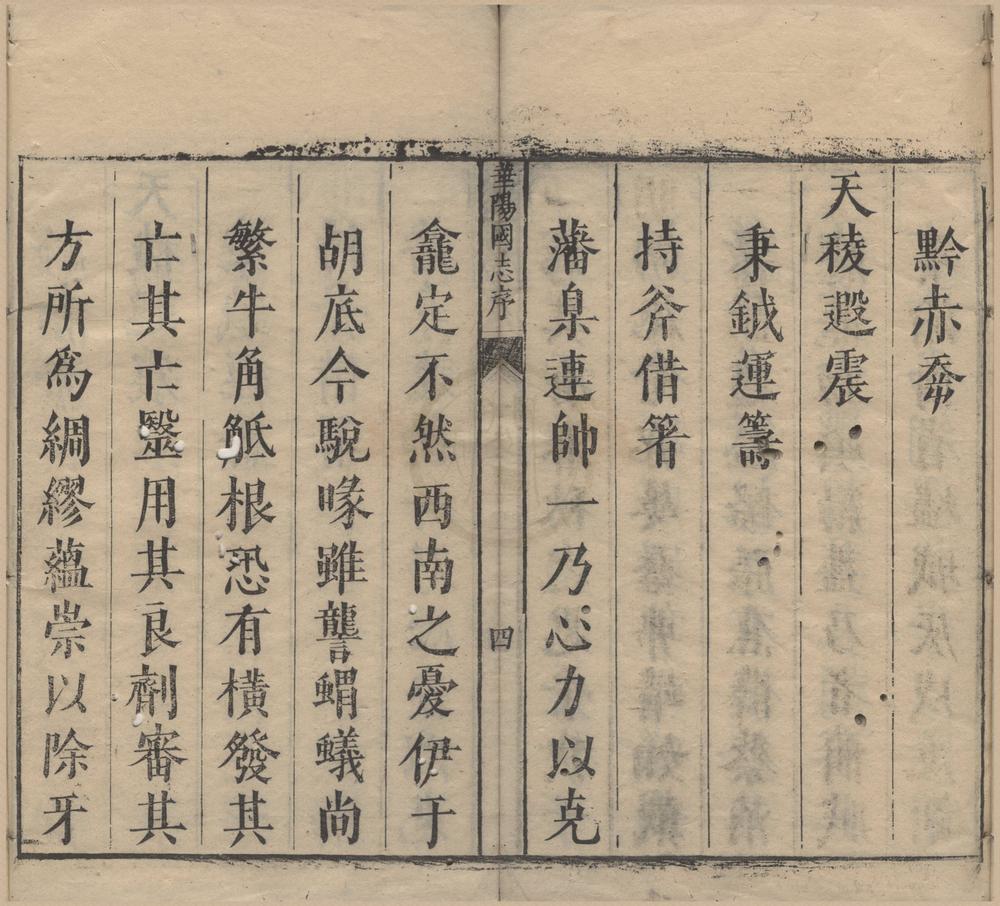 黔赤奫
天稜遐震
秉鉞運籌
持斧借箸
藩臬連帥一乃心力以克
華陽國志序
四
龕定不然西南之憂伊于
胡底今駾喙雖讋蝟蟻尚
繁牛角觝根恐有橫發其
亡其亡毉用其良劑審其
方所為綢繆蘊崇以除牙